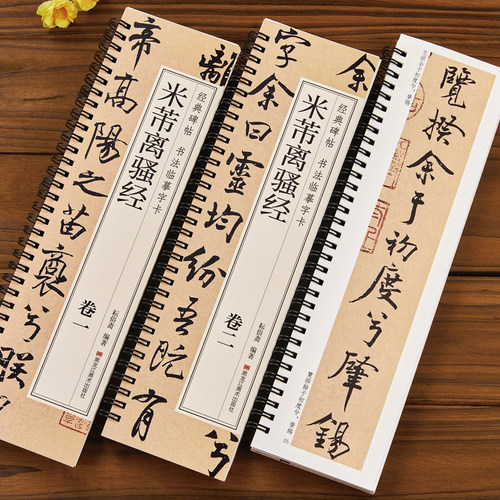 帝高陽之苗裔兮朕
離
经典碑帖 书法临摹字卡
米芾离骚经
卷一
耘俗斋 编著
黑龙江美术出版社
字余曰靈均紛吾既有兮
余
经典碑帖 书法临摹字卡
米芾离骚经
卷二
耘俗斋 编著
黑龙江美术出版社
覽揆余于初度兮肇錫